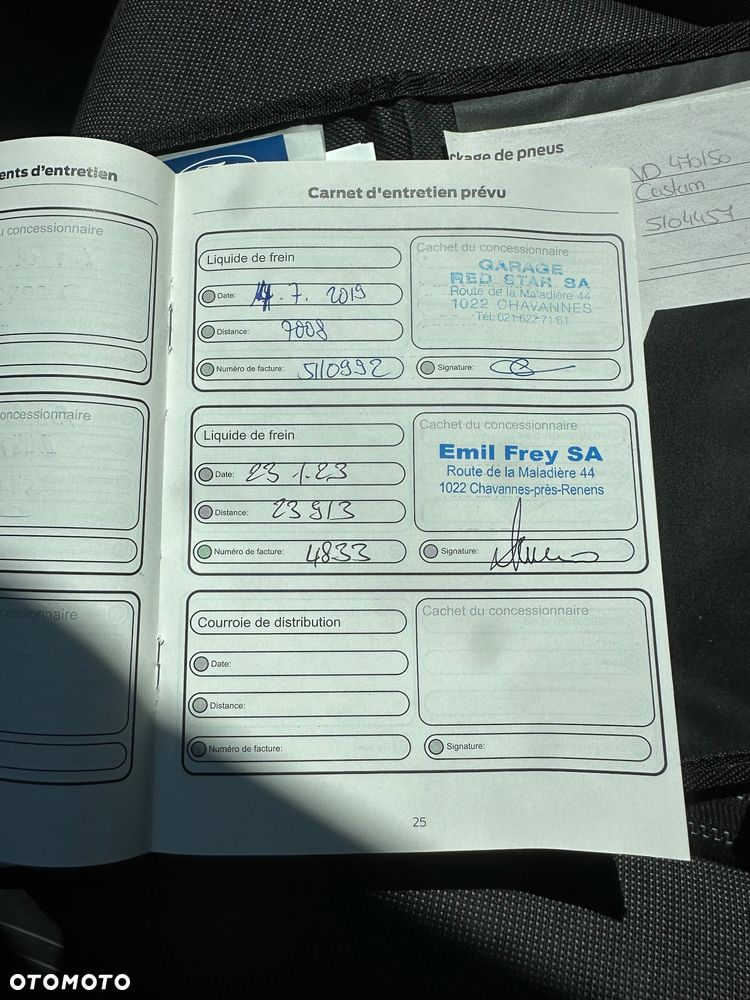 ents d'entretien
concessionnaire
oncessionnaire
cessionnaire
ckage de pneus
VD 470150
Custom
5104457
Carnet d'entretien prévu
Liquide de frein
Date: .7. 2019
Distance: 7008
Numéro de facture: 5110992
Cachet du concessionnaire
GARAGE
RED STAR SA
Route de la Maladière 44
1022 CHAVANNES
Tél. 021 622 71 61
Signature:
Liquide de frein
Date: 23 1.23
Distance: 23 913
Numéro de facture: 4833
Cachet du concessionnaire
Emil Frey SA
Route de la Maladière 44
1022 Chavannes-près-Renens
Signature:
Courroie de distribution
Date:
Distance:
Numéro de facture:
Cachet du concessionnaire
Signature:
25
OTOMOTO